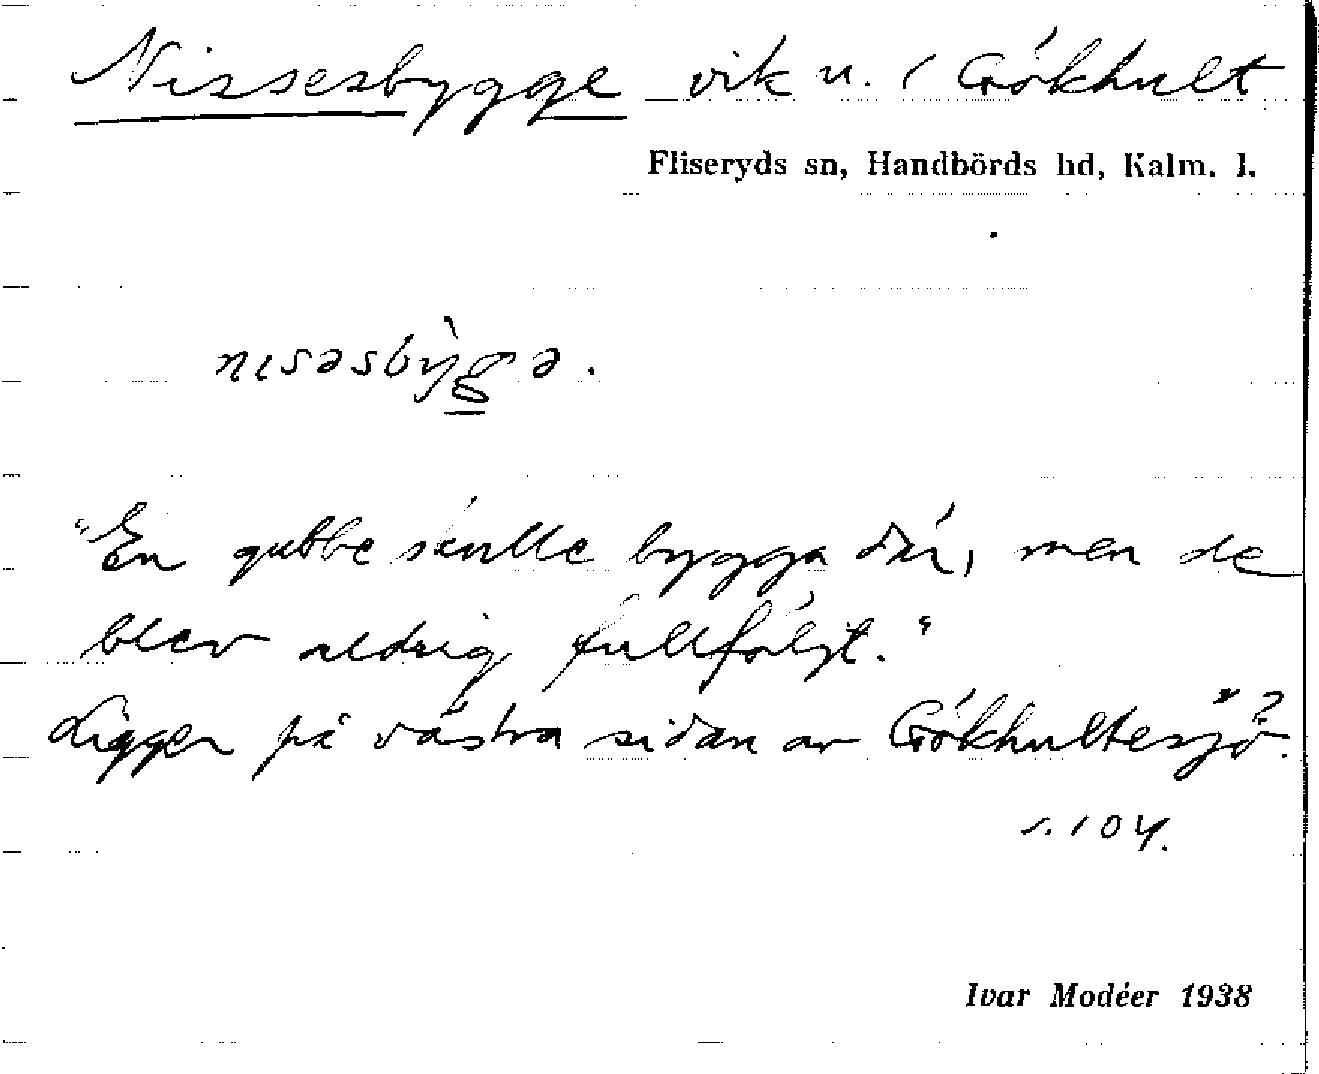 Nissesbygge vik u. / Gökhult
Fliseryds sn, Handbörds hd, Kalm. l.
nisəsby̆gə.
"En gubbe skulle bygga där, men de
blev aldrig fullföljt."
Ligger på västra sidan av Gökhultesjö.
s. 104.
Ivar Modéer 1938